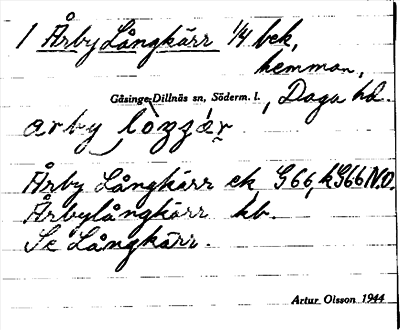 1 Årby Långkärr 1/4 bek,
hemman,
Gåsinge-Dillnäs sn, Söderm. l., Daga hd.
arby lòzzár
Årby Långkärr ek G66, k G66 N.O.
Årbylångkärr hb.
Se Långkärr.
Artur Olsson 1944